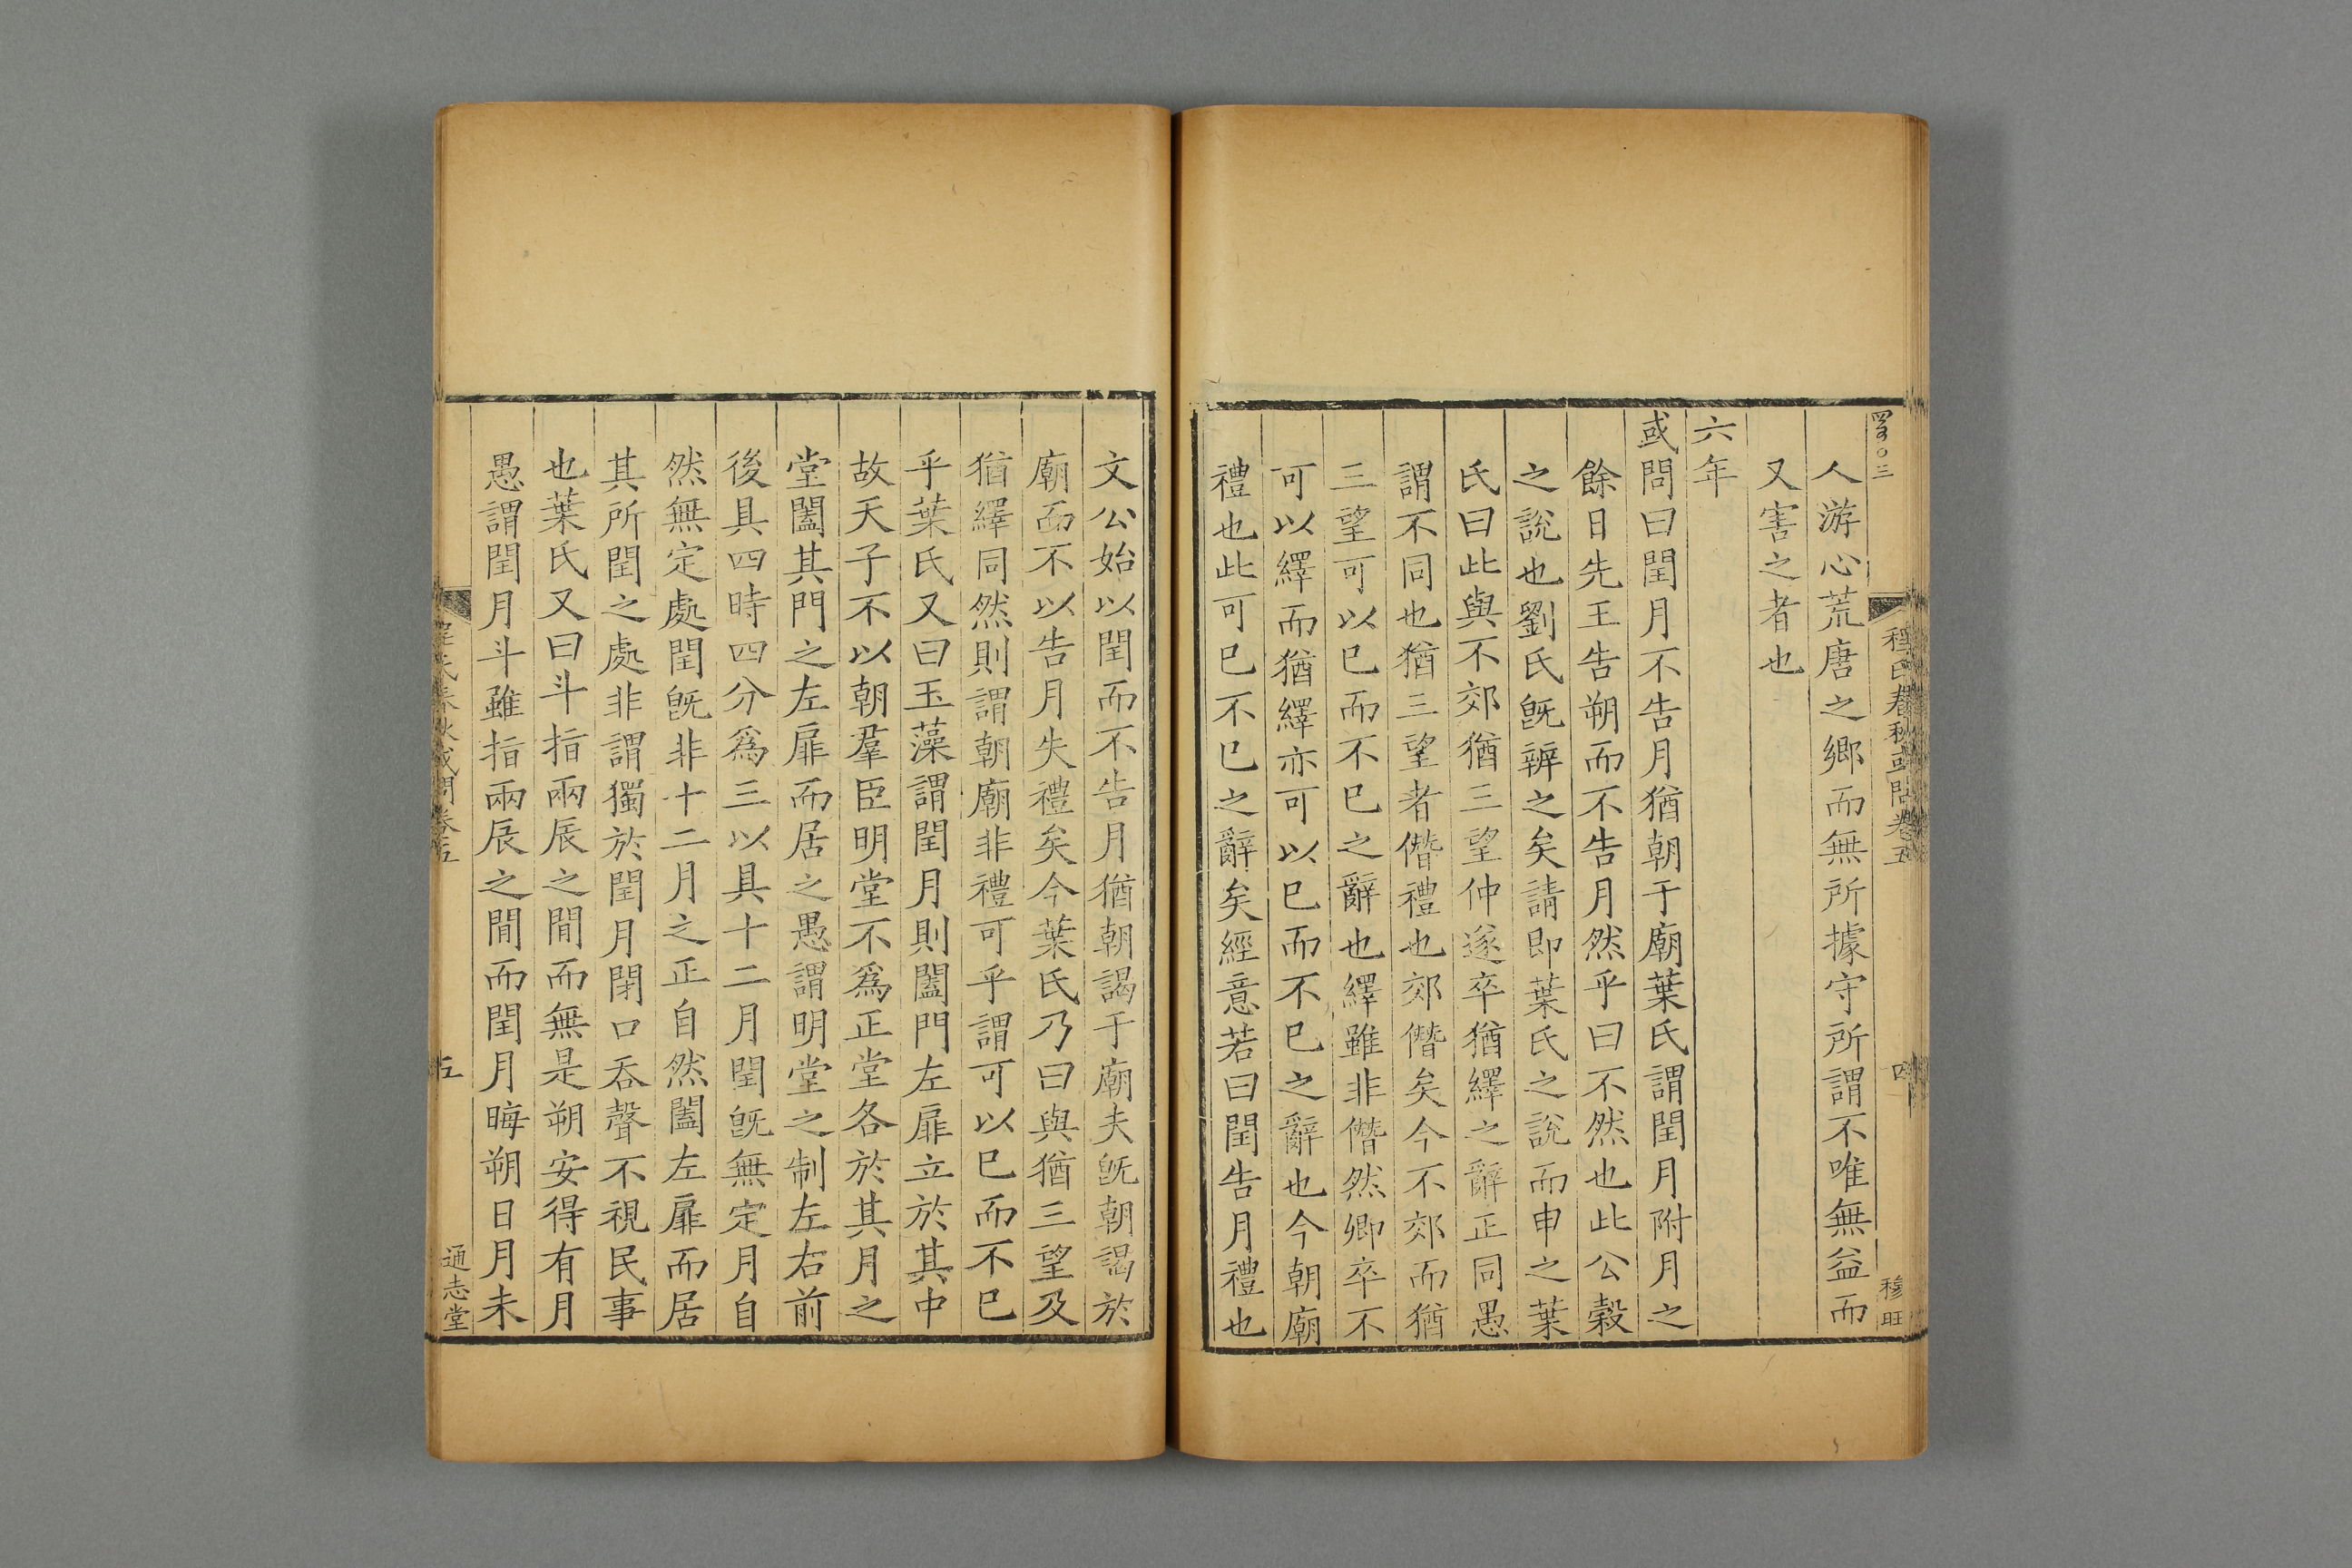 人游心荒唐之鄉而無所據守所謂不唯無益而
又害之者也
六年
或問曰閏月不告月猶朝于廟葉氏謂閏月附月之
餘日先王告朔而不告月然乎曰不然也此公穀
之說也劉氏旣辨之矣請即葉氏之說而申之葉
氏曰此與不郊猶三望仲遂卒猶繹之辭正同愚
謂不同也猶三望者僭禮也郊僭矣今不郊而猶
三望可以巳而不巳之辭也繹雖非僭然卿卒不
可以繹而猶繹亦可以巳而不巳之辭也今朝廟
禮也此可巳不巳之辭矣經意若曰閏告月禮也
文公始以閏而不告月猶朝謁于廟夫旣朝謁於
廟而不以告月失禮矣今葉氏乃曰與猶三望及
猶繹同然則謂朝廟非禮可乎謂可以巳而不巳
乎葉氏又曰玉藻謂閏月則闔門左扉立於其中
故天子不以朝羣臣明堂不爲正堂各於其月之
堂闔其門之左扉而居之愚謂明堂之制左右前
後具四時四分爲三以具十二月閏旣無定月自
然無定處閏旣非十二月之正自然闔左扉而居
其所閏之處非謂獨於閏月閉口吞聲不視民事
也葉氏又曰斗指兩辰之間而無是朔安得有月
愚謂閏月斗雖指兩辰之間而閏月晦朔日月未
程氏春秋或問卷五
四
穆旺
程氏春秋或問卷五
五
通志堂